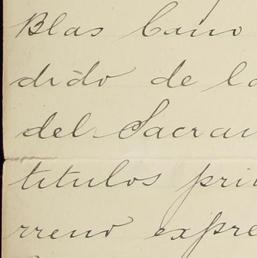 Blas Cano
dido de la
del Sacra
titulos pri
rreno expre